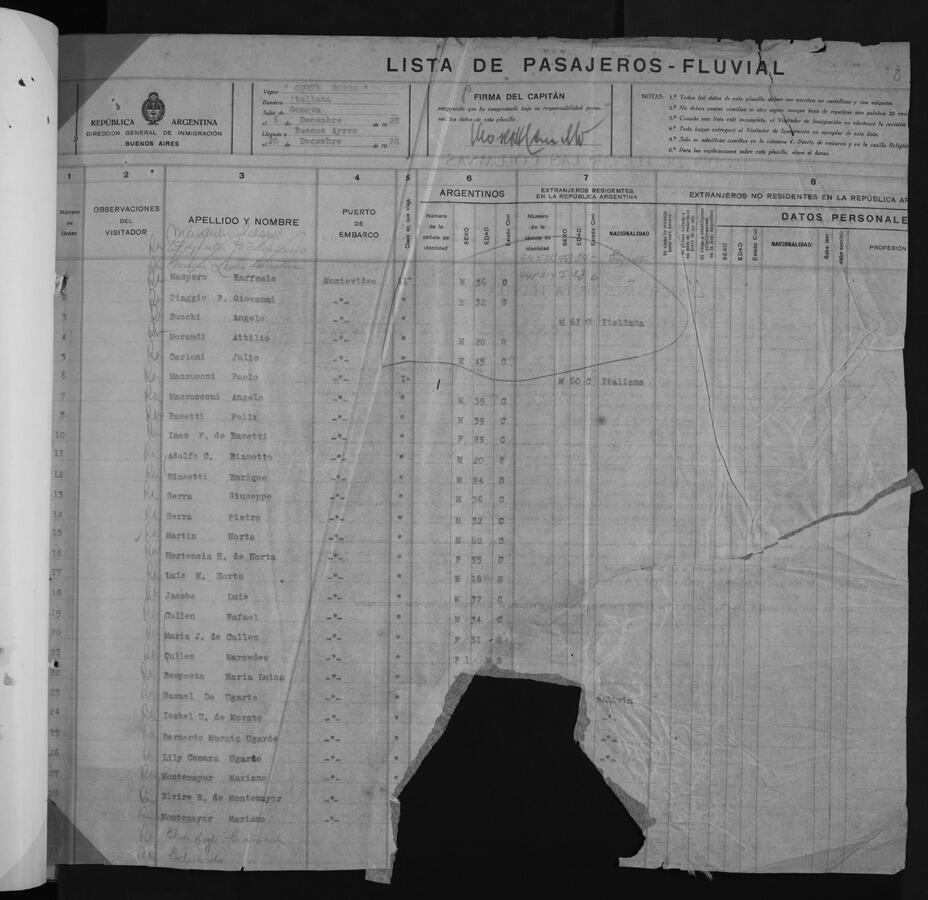 8
LISTA DE PASAJEROS-FLUVIAL
REPÚBLICA ARGENTINA
DIRECCION GENERAL DE INMIGRACIÓN
BUENOS AIRES
Vapor " CONTE ROSSO "
Bandera Italiana
Salió de Genova
el 6 de Decembre de 1928
Llegado a Buenos Ayres
el 20 de Decembre de 1928
FIRMA DEL CAPITÁN
asegurando que ha comprobado bajo su responsabilidad perso-
nal, los datos de esta planilla.
NOTAS:
1.ª Todos los datos de esta planilla deben ser escritos en castellano y con máquina.
2.ª No deben usarse comillas u otro signo, aunque haya de repetirse una palabra 30 veces
3.ª Cuando una lista esté incompleta, el Visitador de Inmigración no efectuará la revisión
4.ª Todo buque entregará al Visitador de Inmigración un ejemplar de esta lista.
5.ª Sólo se admitirán comillas en la columna 4, Puerto de embarco y en la casilla Religión
6.ª Para las explicaciones sobre esta planilla, véase al dorso.
1 2 3 4 5 6 7 8
Número de Orden
OBSERVACIONES DEL VISITADOR
APELLIDO Y NOMBRE
PUERTO DE EMBARCO
Clase en que viaja
ARGENTINOS
Número de la cédula de identidad
SEXO
EDAD
Estado Civil
EXTRANJEROS RESIDENTES EN LA REPÚBLICA ARGENTINA
Número de la cédula de identidad
SEXO
EDAD
Estado Civil
NACIONALIDAD
EXTRANJEROS NO RESIDENTES EN LA REPÚBLICA AR
DATOS PERSONALE
SEXO
EDAD
Estado Civil
NACIONALIDAD
Sabe leer
Sabe escribir
PROFESIÓN
Maspero Raffaele Montevideo II- M 36 C
2 Piaggio P. Giovanni -"- " M 32 S
3 Bucchi Angelo -"- " M 61 C Italiana
4 Morandi Attilio -"- " M 20 S
5 Carloni Julio -"- " M 45 C
6 Mazzucconi Paolo -"- I- M 60 C Italiana
7 Mazzucconi Angelo -"- " M 39 C
8 Rasetti Felix -"- " M 39 C
10 Ines F. de Rasetti -"- " F 25 C
11 Adolfo C. Biasotto -"- " M 20 S
12 Binsetti Enrique -"- " M 24 S
13 Serra Giuseppe -"- " M 36 C
14 Serra Pietro -"- " M 32 C
15 Martin Horta -"- " M 60 C
16 Hortencia E. de Horta -"- " F 55 C
17 Luis M. Horta -"- " M 18 S
18 Jacobe Luis -"- " M 37 C
19 Cullen Rafael -"- " M 34 C
20 Maria J. de Cullen -"- " F 31 C
21 Cullen Mercedes -"- " F S
22 Becposta Maria Luisa -"- "
23 Samuel De Ugarte -"- " Bolivin
24 Isabel U. de Morato -"- " -"-
25 Bernardo Morato Ugarde -"- " -"-
26 Lily Camara Ugarde -"- " -"-
27 Montemayor Mariano -"- "
28 Elvira R. de Montemayor -"- "
Montemayor Mariano -"-
Eduardo